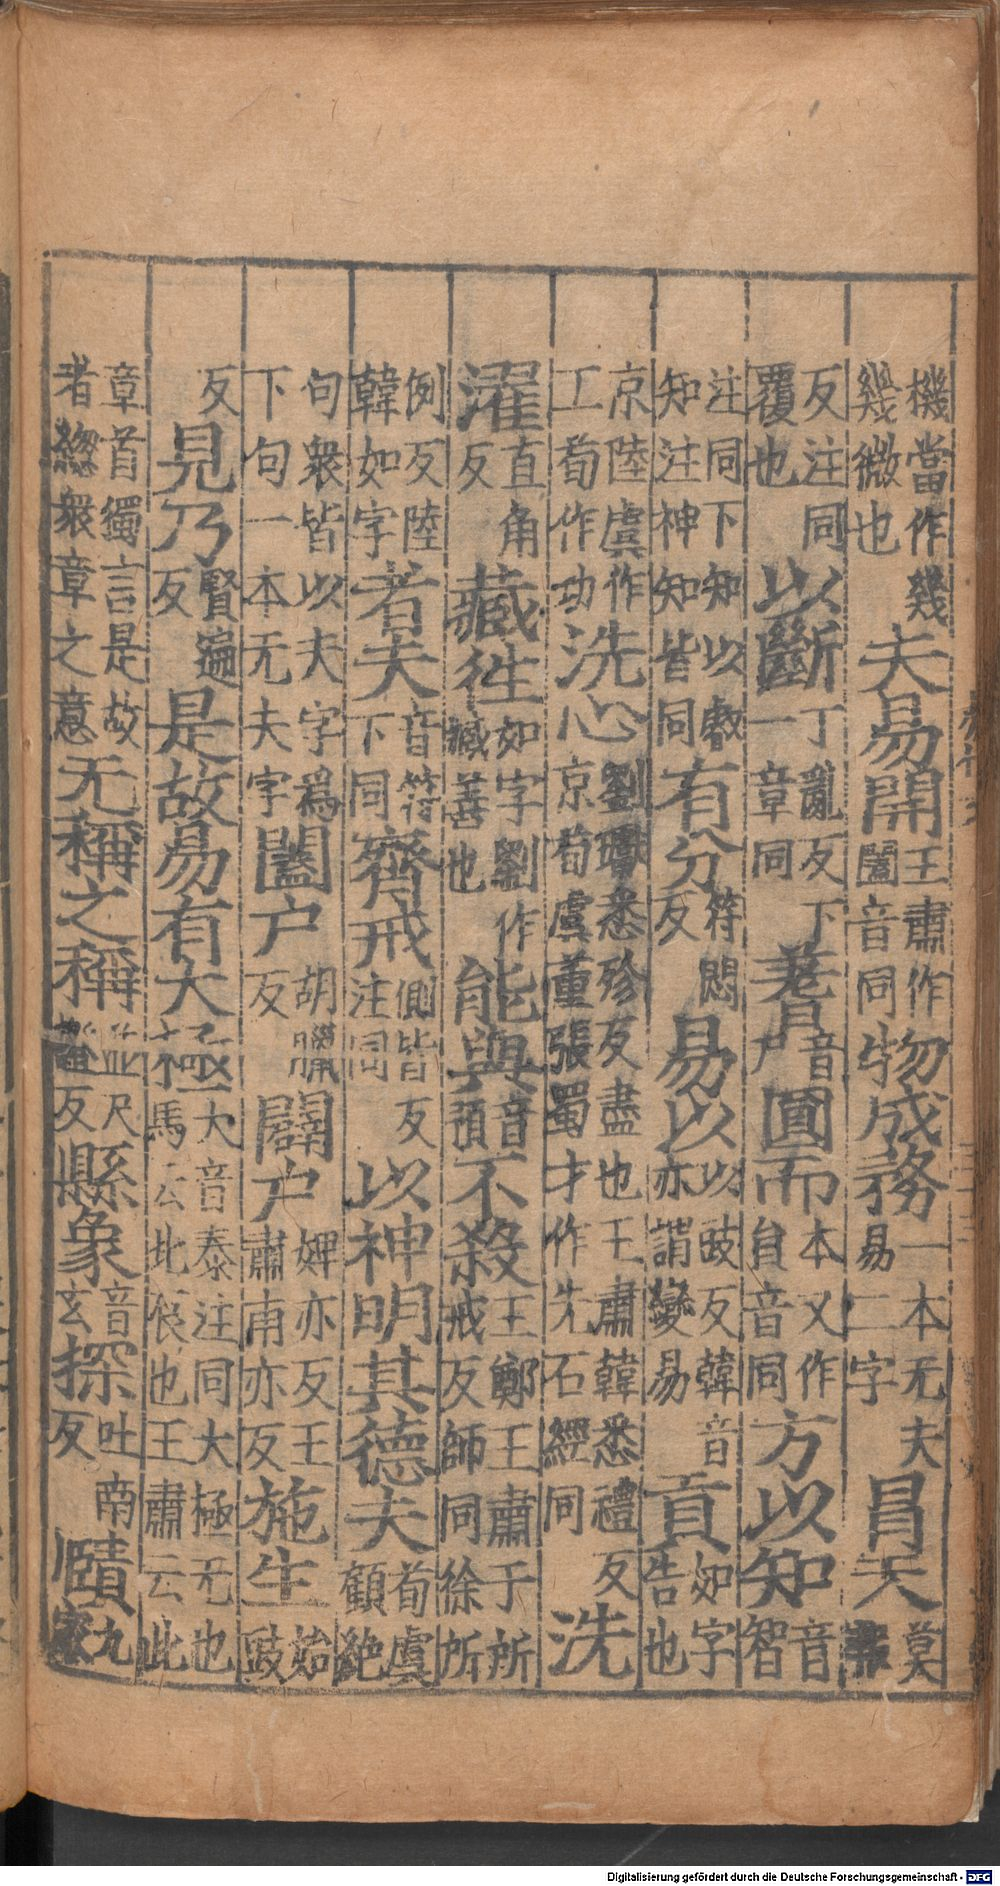 機當作幾幾微也夫易開王肅作闓音同物成務一本无夫易二字冐天莫
反注同覆也以斷丁亂反下一章同蓍音尸圎而本又作員音同方以知音智
注同下知以敎知注神知皆同有分符悶反易以以豉反韓音亦謂變易貢如字告也
京陸虞作工荀作功洗心劉瓛悉殄反盡也王肅韓悉禮反京荀虞董張蜀才作先石經同洗
濯直角反藏徃如字劉作臧善也能與音預不殺王鄭王肅于所戒反師同徐所
例反陸韓如字者夫音符下同齊戒側皆反注同以神明其德夫荀虞顧絶
句衆皆以夫字爲下句一本无夫字闔户胡臘反闢户婢亦反王肅甫亦反施生始豉
反見乃賢遍反是故易有大極大音泰注同大極无也馬云北辰也王肅云此
章首獨言是故者緫衆章之意无稱之稱並尺證反縣象音玄探吐南反賾九家
Digitalisierung gefördert durch die Deutsche Forschungsgemeinschaft - DFG